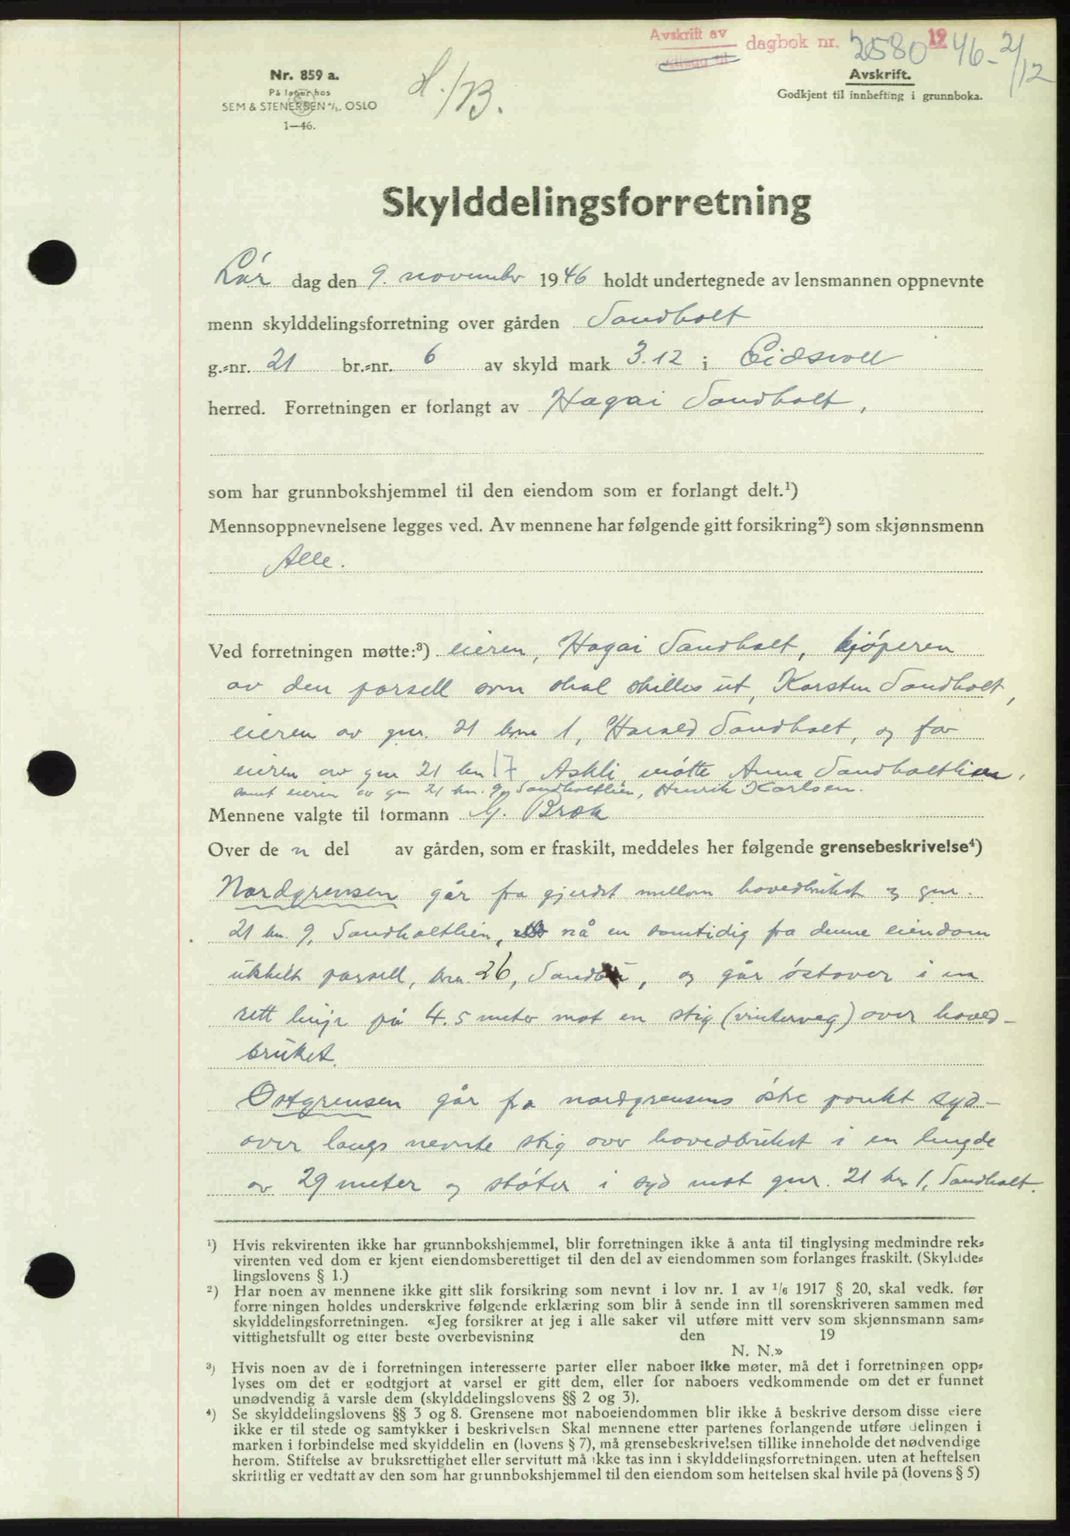 Avskrift av dagbok nr. 2580 1946 - 2/12
Nr. 859 a.
På lager hos
SEM & STENERSEN A/S. OSLO
1—46.
H./B.
Avskrift.
Godkjent til innhefting i grunnboka.
Skylddelingsforretning
Lør dag den 9. november 1946 holdt undertegnede av lensmannen oppnevnte
menn skylddelingsforretning over gården Sandholt
g.-nr. 21 br.-nr. 6 av skyld mark 3.12 i Eidsvoll
herred. Forretningen er forlangt av Hagai Sandholt,
som har grunnbokshjemmel til den eiendom som er forlangt delt.¹)
Mennsoppnevnelsene legges ved. Av mennene har følgende gitt forsikring²) som skjønnsmenn
Alle.
Ved forretningen møtte:³) eieren, Hagai Sandholt, kjøperen
av den parsell som skal skilles ut, Karsten Sandholt,
eieren av gnr. 21 brnr 1, Harald Sandholt, og for
eieren av gnr 21 bnr 17 Askli, møtte Anna Sandholtlien,
samt eieren av gnr 21 bnr. 9, Sandholtlien, Henrik Karlsen.
Mennene valgte til formann G. Bræk
Over de n del av gården, som er fraskilt, meddeles her følgende grensebeskrivelse⁴)
Nordgrensen går fra gjerdet mellom hovedbruket og gnr.
21 bnr. 9, Sandholtlien, nå en samtidig fra denne eiendom
utskilt parsell, bnr. 26, og går østover i en
rett linje på 4.5 meter mot en stig (vinterveg) over hoved-
bruket.
Østgrensen går fra nordgrensens østre punkt syd-
over langs nevnte stig over hovedbruket i en lengde
av 29 meter og støter i syd mot gnr. 21 bnr 1, Sandholt.
¹) Hvis rekvirenten ikke har grunnbokshjemmel, blir forretningen ikke å anta til tinglysing medmindre rek-
virenten ved dom er kjent eiendomsberettiget til den del av eiendommen som forlanges fraskilt. (Skyldde-
lingslovens § 1.)
²) Har noen av mennene ikke gitt slik forsikring som nevnt i lov nr. 1 av 1/6 1917 § 20, skal vedk. før
forretningen holdes underskrive følgende erklæring som blir å sende inn til sorenskriveren sammen med
skylddelingsforretningen. «Jeg forsikrer at jeg i alle saker vil utføre mitt verv som skjønnsmann sam-
vittighetsfullt og etter beste overbevisning den 19
N. N.»
³) Hvis noen av de i forretningen interesserte parter eller naboer ikke møter, må det i forretningen opp-
lyses om det er godtgjort at varsel er gitt dem, eller for naboers vedkommende om det er funnet
unødvendig å varsle dem (skylddelingslovens §§ 2 og 3).
⁴) Se skylddelingslovens §§ 3 og 8. Grensene mot naboeiendommen blir ikke å beskrive dersom disse eiere
ikke er til stede og samtykker i beskrivelsen Skal mennene etter partenes forlangende utføre delingen i
marken i forbindelse med skylddelin en (lovens § 7), må grensebeskrivelsen tillike inneholde det nødvendige
herom. Stiftelse av bruksrettighet eller servitutt må ikke tas inn i skylddelingsforretningen. uten at heftelsen
skriftlig er vedtatt av den som har grunnbokshjemmel til den eiendom som heftelsen skal hvile på (lovens § 5)